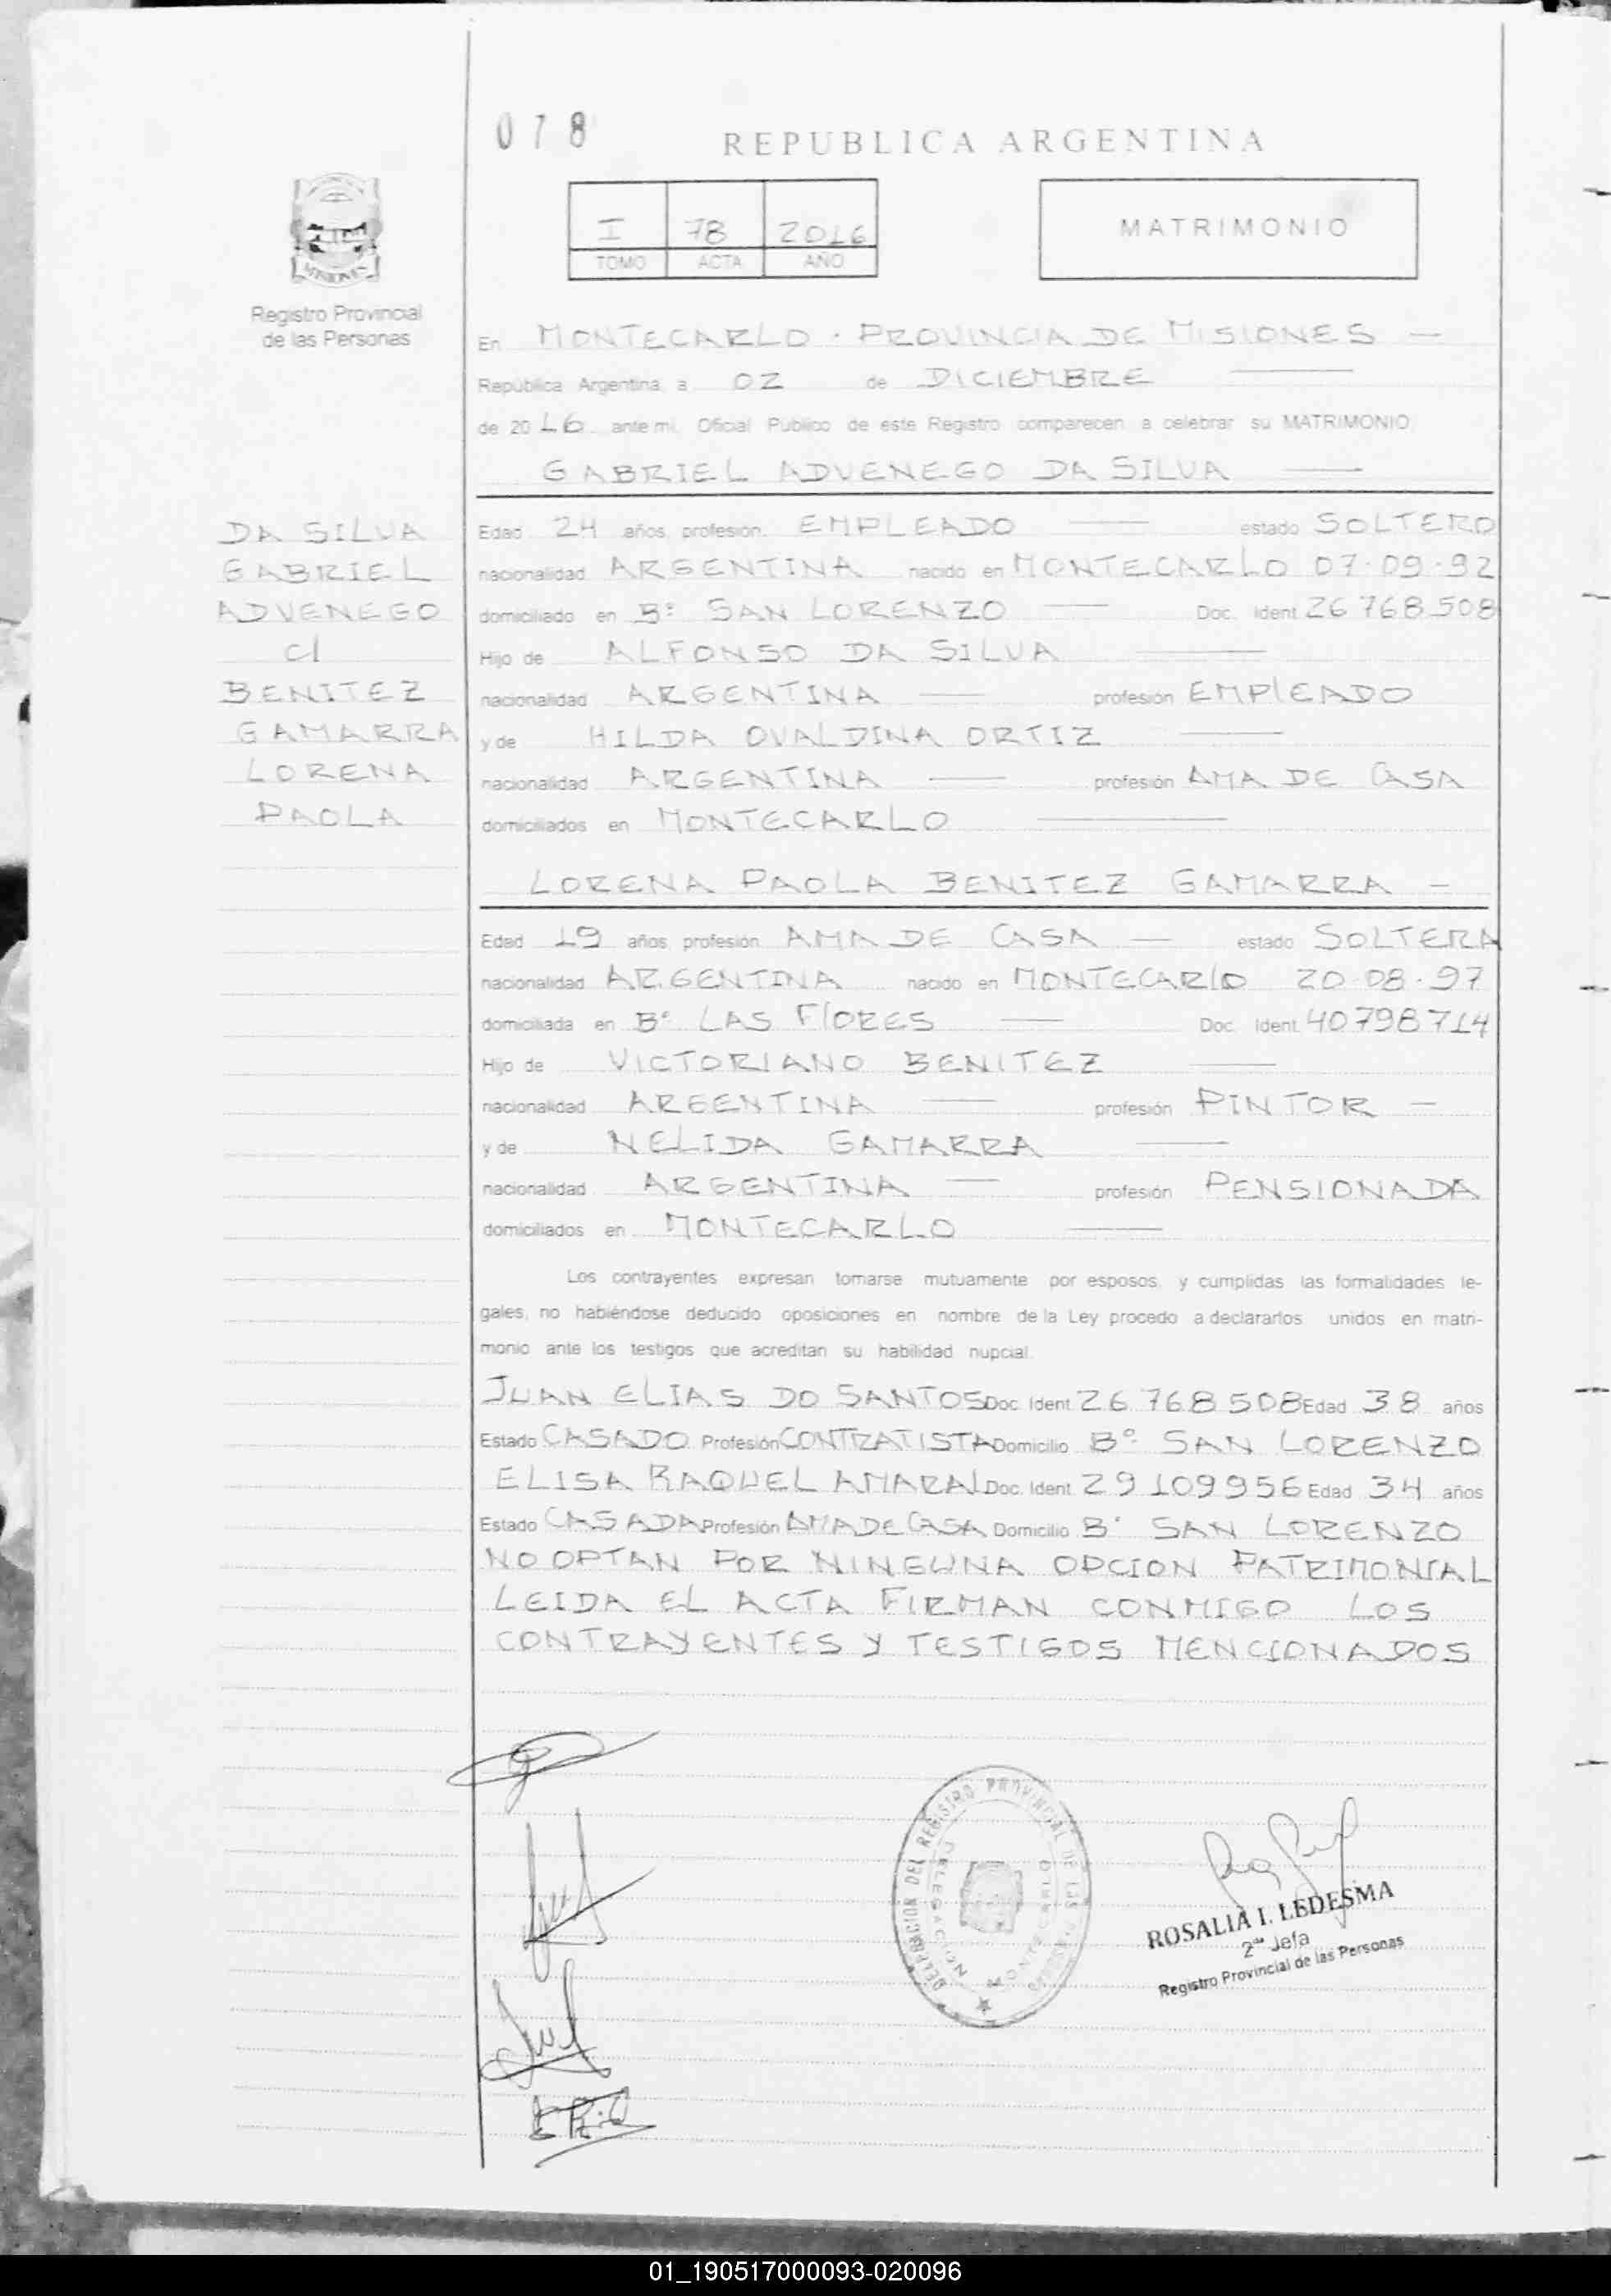 078
REPUBLICA ARGENTINA
I 78 2016
TOMO ACTA AÑO
MATRIMONIO
MISIONES
Registro Provincial
de las Personas
En MONTECARLO · PROVINCIA DE MISIONES —
República Argentina, a 02 de DICIEMBRE —
de 2016 ante mí, Oficial Público de este Registro comparecen a celebrar su MATRIMONIO
GABRIEL ADVENEGO DA SILVA —
DA SILVA
GABRIEL
ADVENEGO
c/
BENITEZ
GAMARRA
LORENA
PAOLA
Edad 24 años, profesión EMPLEADO — estado SOLTERO
nacionalidad ARGENTINA nacido en MONTECARLO 07·09·92
domiciliado en B° SAN LORENZO — Doc. Ident 26 768 508
Hijo de ALFONSO DA SILVA —
nacionalidad ARGENTINA — profesión EMPLEADO
y de HILDA OVALDINA ORTIZ —
nacionalidad ARGENTINA — profesión AMA DE CASA
domiciliados en MONTECARLO —
LORENA PAOLA BENITEZ GAMARRA —
Edad 19 años profesión AMA DE CASA — estado SOLTERA
nacionalidad ARGENTINA nacido en MONTECARLO 20·08·97
domiciliada en B° LAS FLORES — Doc. Ident 40798714
Hijo de VICTORIANO BENITEZ —
nacionalidad ARGENTINA — profesión PINTOR —
y de NELIDA GAMARRA —
nacionalidad ARGENTINA — profesión PENSIONADA
domiciliados en MONTECARLO —
Los contrayentes expresan tomarse mutuamente por esposos, y cumplidas las formalidades le-
gales, no habiéndose deducido oposiciones en nombre de la Ley procedo a declararlos unidos en matri-
monio ante los testigos que acreditan su habilidad nupcial.
JUAN ELIAS DO SANTOS Doc. Ident 26 768 508 Edad 38 años
Estado CASADO Profesión CONTRATISTA Domicilio B° SAN LORENZO
ELISA RAQUEL AMARAL Doc. Ident 29109956 Edad 34 años
Estado CASADA Profesión AMA DE CASA Domicilio B° SAN LORENZO
NO OPTAN POR NINGUNA OPCION PATRIMONIAL
LEIDA EL ACTA FIRMAN CONMIGO LOS
CONTRAYENTES Y TESTIGOS MENCIONADOS
DELEGACION DEL REGISTRO PROVINCIAL DE LAS
DELEGACION
ROSALIA I. LEDESMA
2da Jefa
Registro Provincial de las Personas
01_190517000093-020096